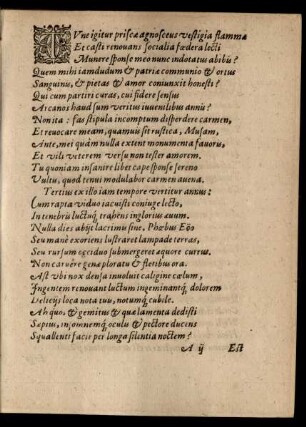 TVne igitur priscæ agnoscens vestigia flammæ
Et casti renouans socialia fœdera lecti
Munere sponse meo nunc indotatus abibis?
Quem mihi iamdudum & patriæ communio & ortus
Sanguinis, & pietas & amor coniunxit honesti?
Qui cum partiri curas, cui fidere sensus
Arcanos haud sum veritus iuuenilibus annis?
Non ita: fas stipula incomptum disperdere carmen,
Et reuocare meam, quamuis sit rustica, Musam,
Ante, mei quàm nulla extent monumenta fauoris,
Et vili veterem versu non tester amorem.
Tu quoniam insanire libet cape sponse sereno
Vultu, quod tenui modulabor carmen auena.
Tertius ex illo iam tempore vertitur annus:
Cum rapta viduo iacuisti coniuge lecto,
In tenebris luctuq́; trahens inglorius æuum.
Nulla dies abijt lacrimis sine. Phœbus Eôo
Seu manè exoriens lustraret lampade terras,
Seu rursum occiduo submergeret æquore currus.
Non caruêre genæ ploratu & fletibus ora.
Ast vbi nox densa inuoluit caligine cœlum,
Ingentem renouant luctum ingeminantq́; dolorem
Delitijs loca nota tuis, notumq́; cubile.
Ah quo, & gemitus & quæ lamenta dedisti
Sæpius, insomnemq́; oculis & pectore ducens
Squallenti facie per longa silentia noctem?
A ij Est